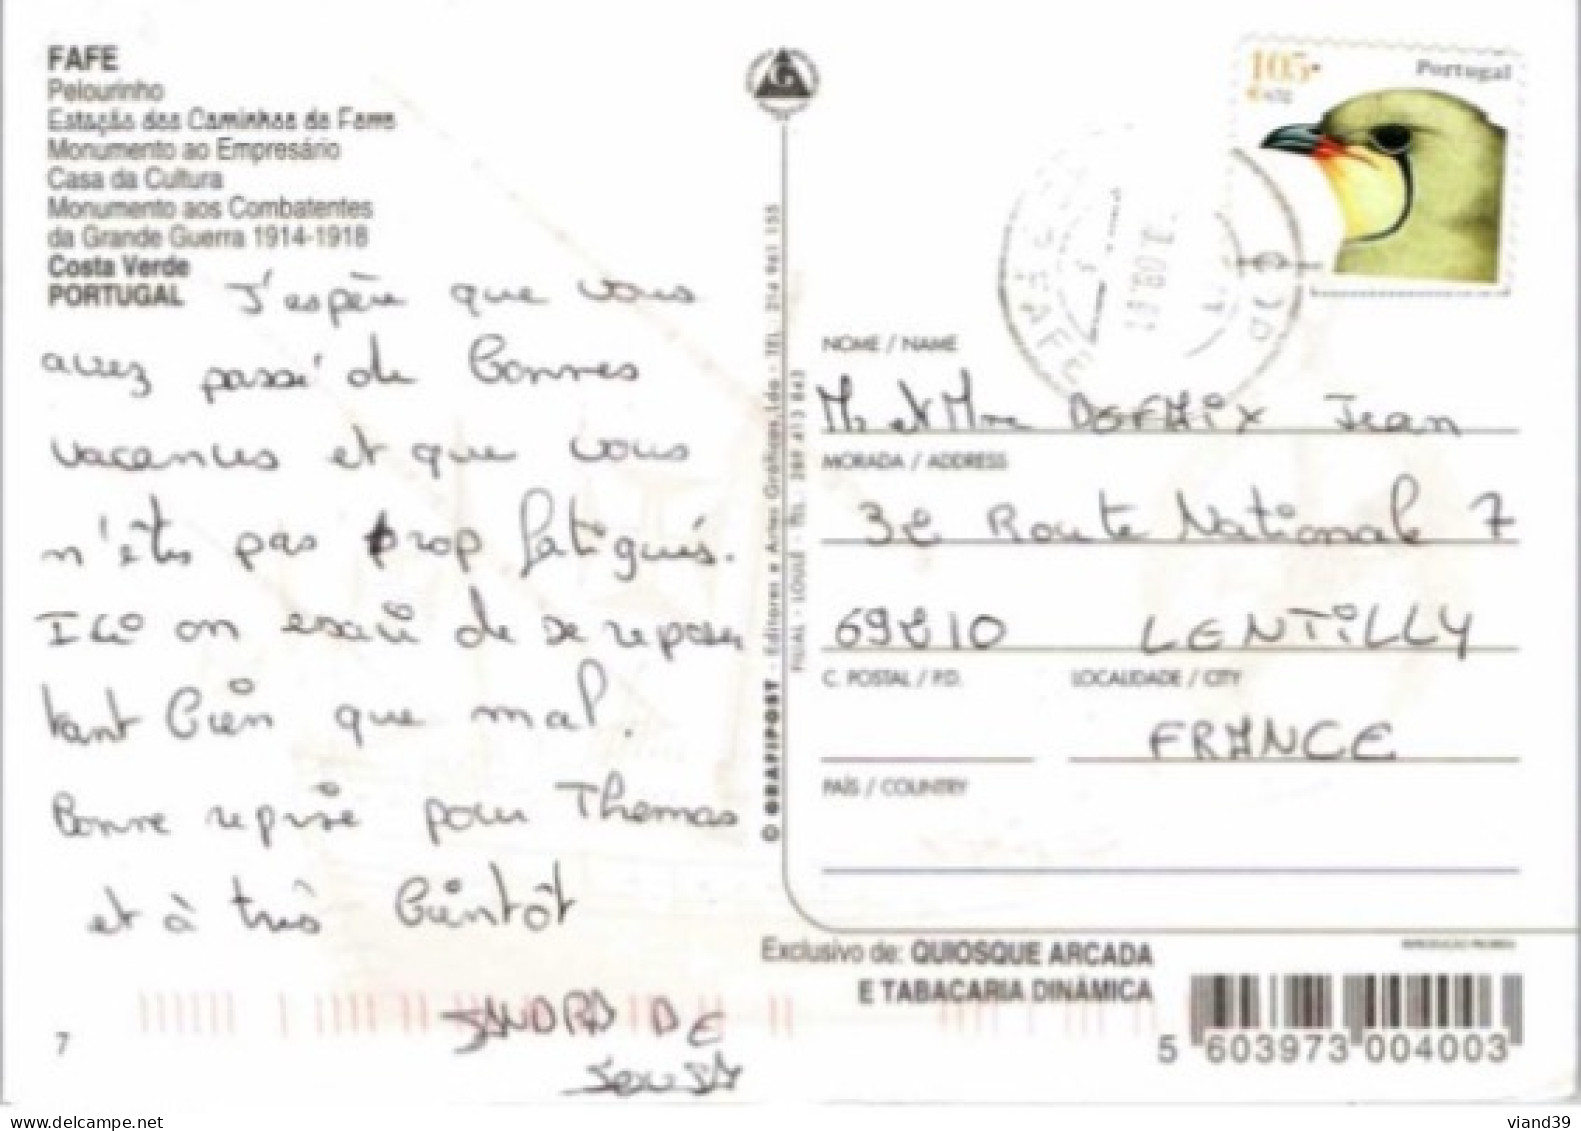 FAFE
Pelourinho
Estação dos Caminhos de Ferro
Monumento ao Empresário
Casa da Cultura
Monumento aos Combatentes
da Grande Guerra 1914-1918
Costa Verde
PORTUGAL
J'espère que vous
avez passé de bonnes
vacances et que vous
n'êtes pas trop fatigués.
Ici on essaie de se reposer
tant bien que mal.
Bonne reprise pour Thomas
et à très bientôt
SANDRA DE
SOUSA
7
© GRAFIPOST - Editores e Artes Gráficas, Lda - TEL. 214 961 155
FILIAL - LOULÉ - TEL. 289 413 843
105
Portugal
FAFE
NOME / NAME
Mr et Mme DEFAIX Jean
MORADA / ADDRESS
32 Route Nationale 7
69210 LENTILLY
C. POSTAL / P.D. LOCALIDADE / CITY
FRANCE
PAÍS / COUNTRY
Exclusivo de: QUIOSQUE ARCADA
E TABACARIA DINÂMICA
5 603973 004003
delcampe.net
viand39